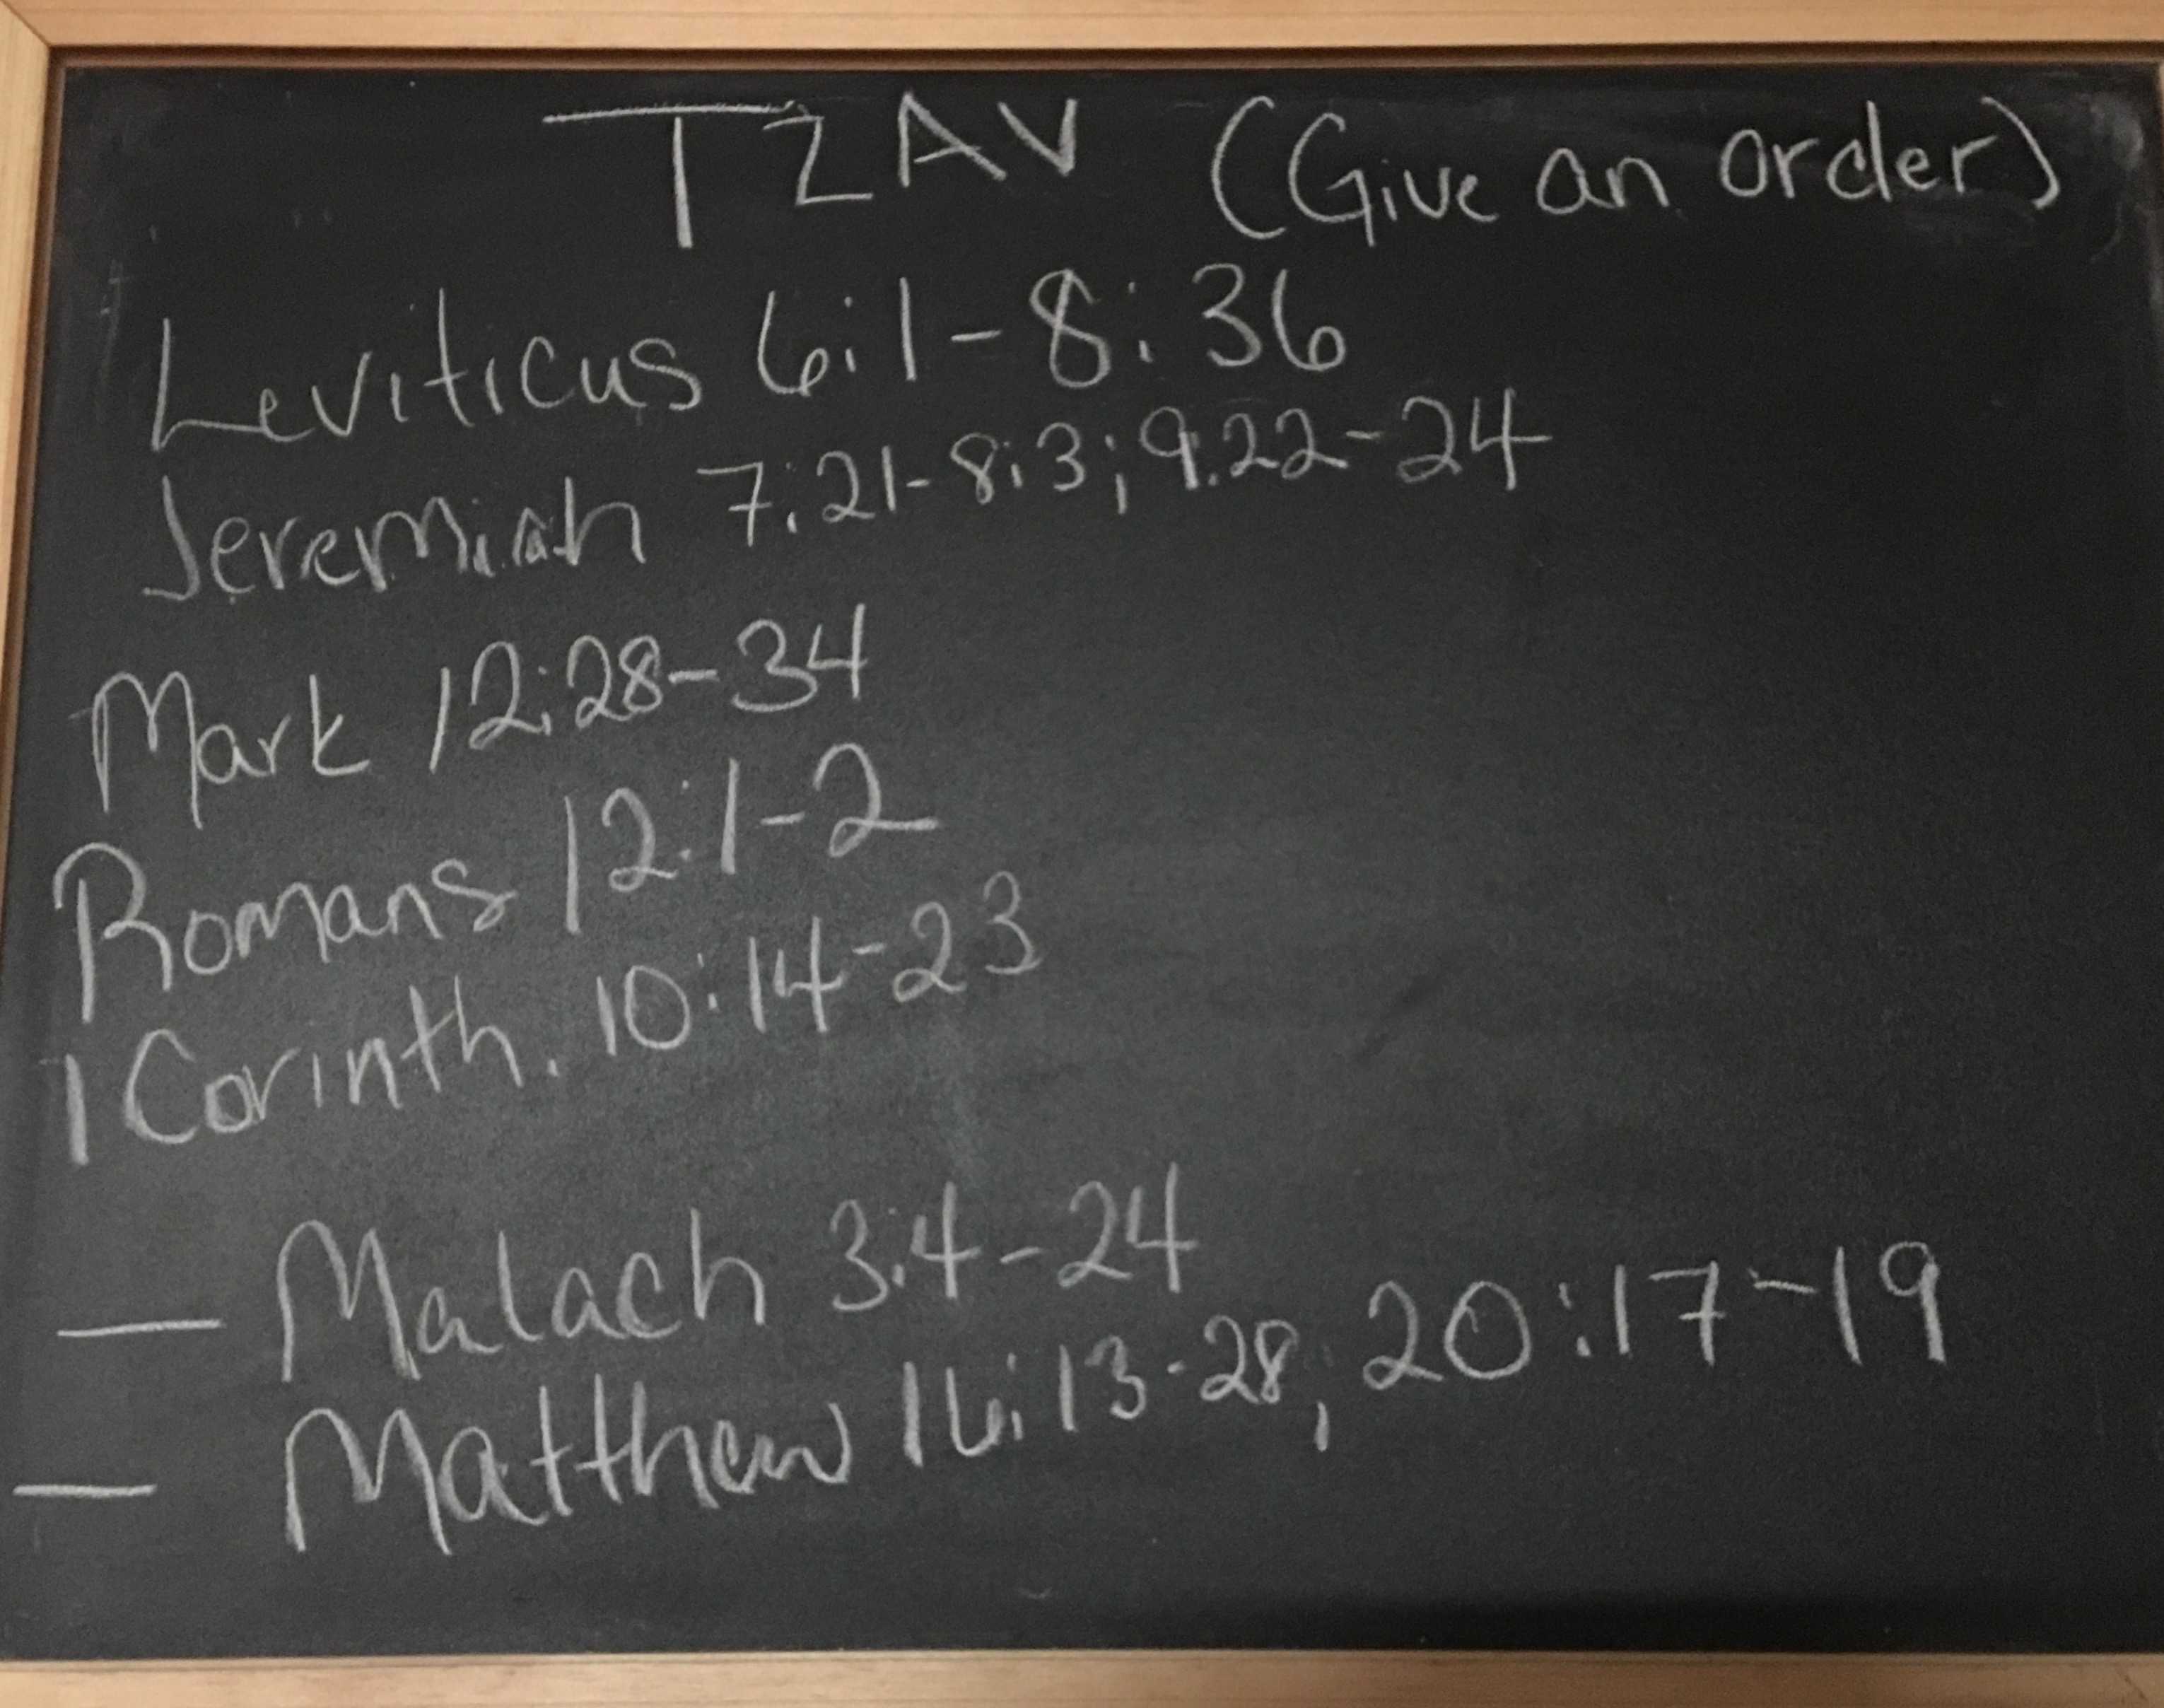 TZAV (Give an order)
Leviticus 6:1-8:36
Jeremiah 7:21-8:3; 9:22-24
Mark 12:28-34
Romans 12:1-2
1 Corinth. 10:14-23
— Malach 3:4-24
— Matthew 16:13-28, 20:17-19